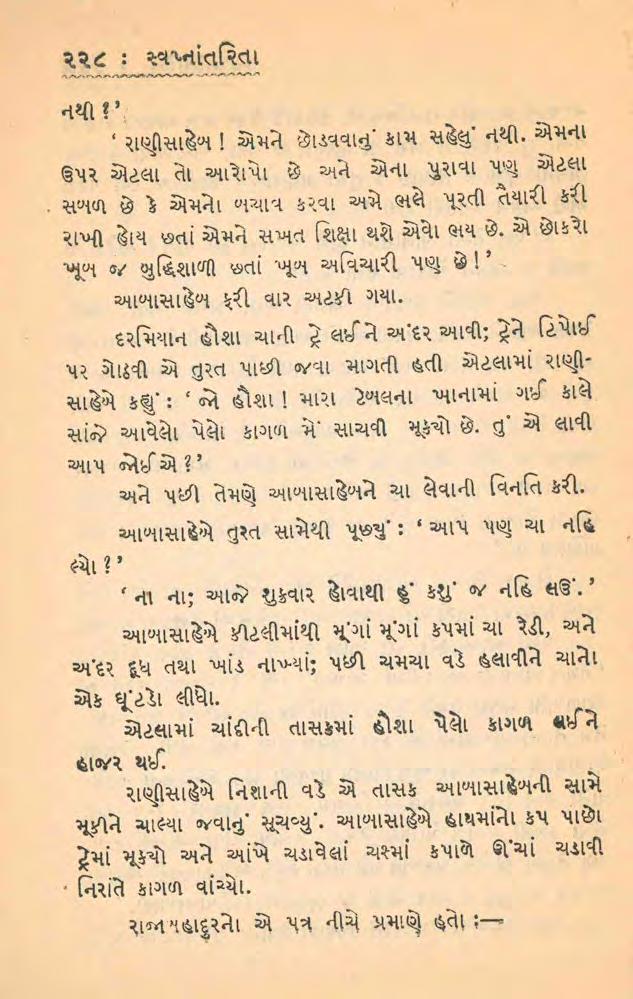 ૨૨૮ : સ્વપ્નાંતરિતા
નથી ?’
‘ રાણીસાહેબ ! એમને છોડવવાનું કામ સહેલું નથી. એમના
ઉપર એટલા તો આરોપો છે અને એના પુરાવા પણ એટલા
સબળ છે કે એમનો બચાવ કરવા અમે ભલે પૂરતી તૈયારી કરી
રાખી હોય છતાં એમને સખત શિક્ષા થશે એવો ભય છે. એ છોકરો
ખૂબ જ બુદ્ધિશાળી છતાં ખૂબ અવિચારી પણ છે ! ’
આબાસાહેબ ફરી વાર અટકી ગયા.
દરમિયાન હૌશા ચાની ટ્રે લઈને અંદર આવી; ટ્રેને ટિપોઈ
પર ગોઠવી એ તુરત પાછી જવા માગતી હતી એટલામાં રાણી-
સાહેબે કહ્યું : ‘ જો હૌશા ! મારા ટેબલના ખાનામાં ગઈ કાલે
સાંજે આવેલો પેલો કાગળ મેં સાચવી મૂક્યો છે. તું એ લાવી
આપ જોઈએ ?’
અને પછી તેમણે આબાસાહેબને ચા લેવાની વિનતિ કરી.
આબાસાહેબે તુરત સામેથી પૂછ્યું : ‘ આપ પણ ચા નહિ
લ્યો ?’
‘ ના ના; આજે શુક્રવાર હોવાથી હું કશું જ નહિ લઉં. ’
આબાસાહેબે કીટલીમાંથી મૂંગાં મૂંગાં કપમાં ચા રેડી, અને
અંદર દૂધ તથા ખાંડ નાખ્યાં; પછી ચમચા વડે હલાવીને ચાનો
એક ઘૂંટડો લીધો.
એટલામાં ચાંદીની તાસકમાં હૌશા પેલો કાગળ લઈને
હાજર થઈ.
રાણીસાહેબે નિશાની વડે એ તાસક આબાસાહેબની સામે
મૂકીને ચાલ્યા જવાનું સૂચવ્યું. આબાસાહેબે હાથમાંનો કપ પાછો
ટ્રેમાં મૂક્યો અને આંખે ચડાવેલાં ચશ્માં કપાળે ઊંચાં ચડાવી
નિરાંતે કાગળ વાંચ્યો.
રાજાબહાદુરનો એ પત્ર નીચે પ્રમાણે હતો :—